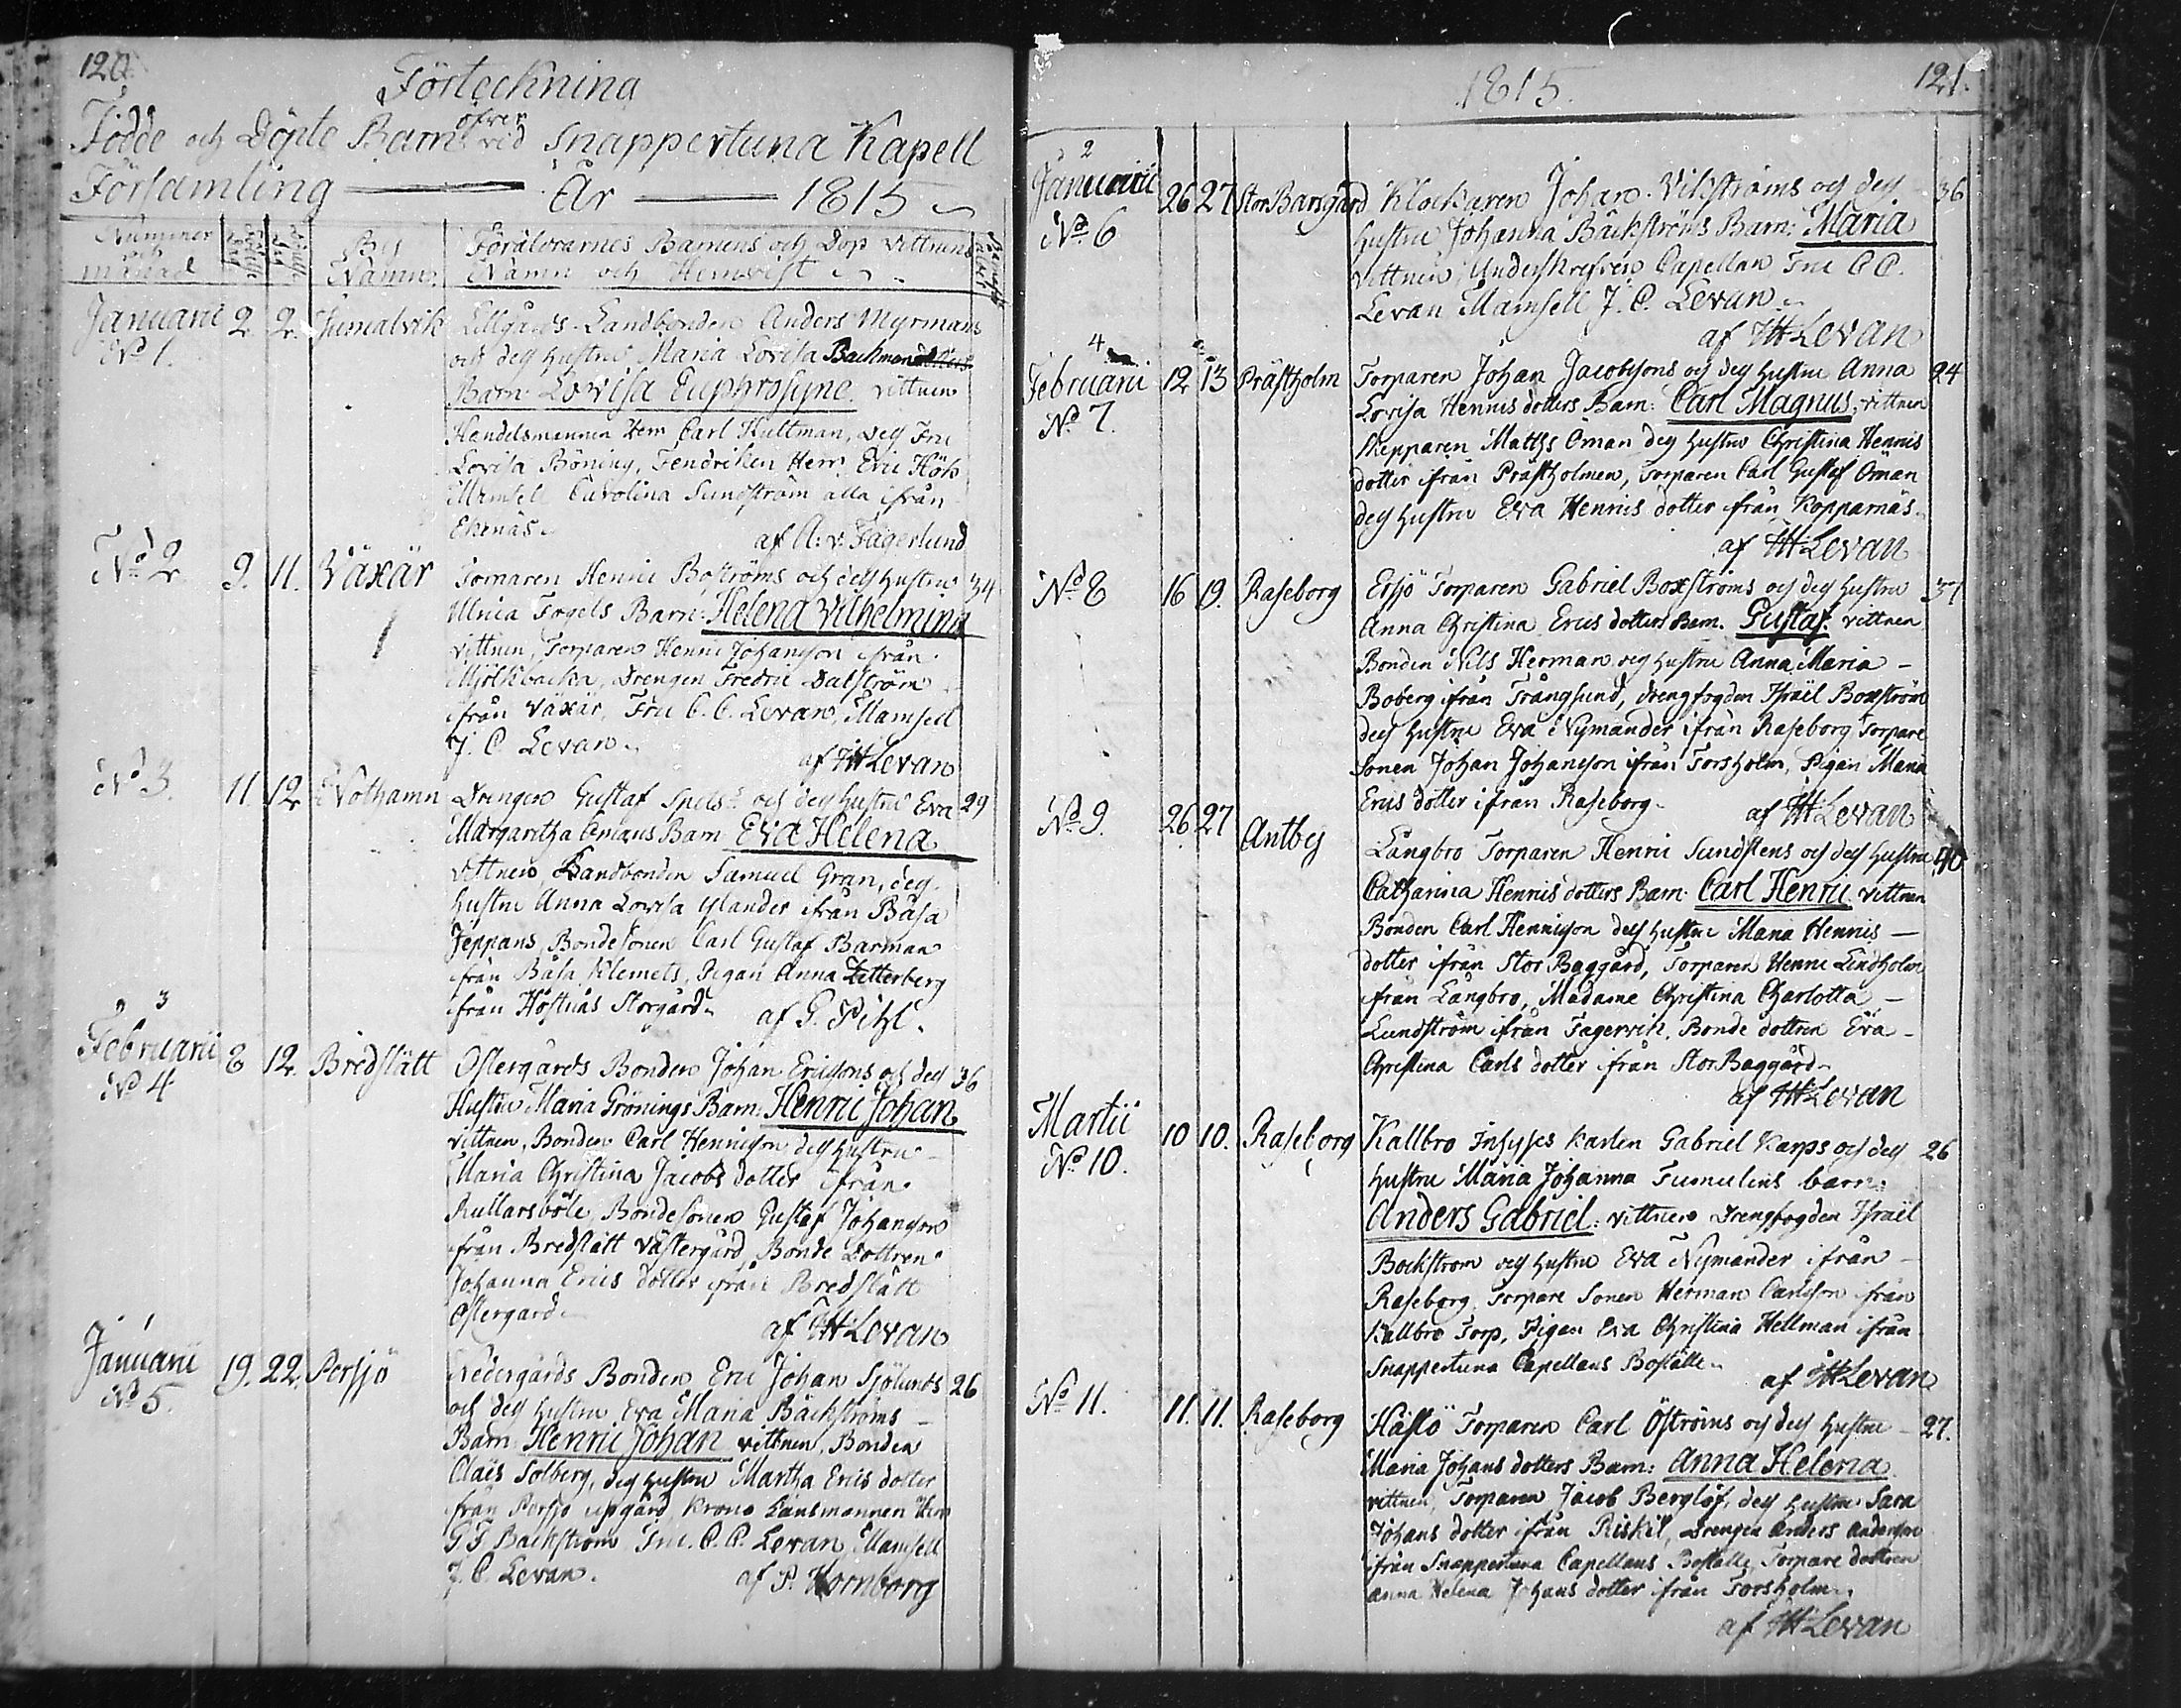 120.
Förteckning
öfver
Födde och Döpte Barn vid Snappertuna Kapell
Församling — År — 1815
Nummer och månad
By Namn.
Föräldrarnes Barnens och Dop vittnens
Namn och Hemvist
Januarii 2. 2.
No 1.
Lillgårds Landbonden Anders Myrmans
och dess hustrus Maria Lovisa Backmans
Barn: Lovisa Euphrosyne. vittnen
Handelsmannen Herr Carl Hultman, dess Fru
Lovisa Böning, Fendriken Herr Eric Höök
Mamsell Carolina Sundström alla ifrån
Ekenäs.
af A. v. Fagerlund
No 2 9. 11. Växär
Tornaren Henric Boströms och dess hustrus 34
Ulrica Fogels Barn: Helena Vilhelmina
vittnen, Torparen Henric Johansson ifrån
Mjölkbacka, Drengen Fredric Dalström
ifrån Växär, Fru C. C. Levan, Mamsell
J. C. Levan.
af HH Levan
No 3. 11. 12 Nothamn
Drengen Gustaf Spels och dess hustrus Eva 29
Margaretha Omans Barn Eva Helena
vittnen, Landbonden Samuel Gran, dess
hustru Anna Lovisa ylander ifrån Båsa
Jeppans, Bondesonen Carl Gustaf Barman
ifrån Båsa Klemets, Pigan Anna Zetterberg
ifrån Höstnäs Storgård.
af G. Pihl.
3
Februarii 8 12. Bredslätt
No 4
Östergårds Bonden Johan Ericsons och dess 36
Hustru Maria Grönings Barn: Henric Johan
vittnen, Bonden Carl Henricson dess hustru
Maria Christina Jacobs dotter ifrån
Rullarsböle, Bondesonen Gustaf Johanson
ifrån Bredslätt västergård, Bonde Dottren
Johanna Erics dotter ifrån Bredslätt
Östergård.
af HH Levan
1
Januarii 19. 22. Persjö
No 5.
Nedergårds Bonden Eric Johan Sjölunds 26
och dess hustru Eva Maria Bäckströms
Barn: Henric Johan vittnen, Bonden
Claës Solberg, dess hustru Martha Erics dotter
från Persjö upgård, Krono Länsmannen Herr
G. F Backström Fru. C. C. Levan, Mamsell
J. C. Levan.
af P. Hornborg
1815.
121.
2
Januarii 26 27 Stor Barsgård
No 6
Klockaren Johan Vikströms och dess 36
hustru Johanna Bäckströms Barn: Maria
vittnen, Underskrefven Capellan Fru C C.
Levan Mamsell J. C. Levan.
af HH Levan
4
Februarii 12 13 Prästholm
No 7.
Torparen Johan Jacobsons och dess hustru Anna 24
Lovisa Henrics dotters Barn: Carl Magnus, vittnen
Skepparen Matths Öman dess hustru Christina Henrics
dotter ifrån Prästholmen, Torparen Carl Gustaf Öman
dess hustru Eva Henrics dotter ifrån Kopparnäs.
af HH Levan
No 8 16 19. Raseborg
Ersjö Torparen Gabriel Boxströms och dess hustru 37
Anna Christina Erics dotters Barn. Gustaf. vittnen
Bonden Nils Herman dess hustru Anna Maria
Boberg ifrån Trångsund, drengfogden Israël Boxström
dess hustru Eva Nymander ifrån Raseborg Torpare
Sonen Johan Johanson ifrån Torsholm, Pigan Maria
Erics dotter ifrån Raseborg.
af HH Levan
No 9. 26. 27 Antby
Långbro Torparen Henric Sundstens och dess hustru 40
Catharina Henrics dotters Barn: Carl Henric vittnen
Bonden Carl Henricson dess hustru Maria Henrics
dotter ifrån Stor Baggård, Torparen Henric Lindholm
ifrån Långbro, Madame Christina Charlotta
Lundström ifrån Fagervik. Bonde dottren Eva
Christina Carls dotter ifrån Stor Baggård.
af HH Levan
Martii 10 10. Raseborg
No 10.
Kallbro Inhyses karlen Gabriel Karps och dess 26
hustru Maria Johanna Tumulins barn.
Anders Gabriel: vittnen Drengfogden Israël
Bockstrom dess hustru Eva Nymander ifrån
Raseborg, Torpare Sonen Herman Carlsson ifrån
Kallbro Torp, Pigan Eva Christina Hellman ifrån
Snappertuna Capellans Boställe.
af HH Levan
No 11. 11. 11. Raseborg
Häslö Torparen Carl Öströms och dess hustru 27.
Maria Johans dotters Barn: Anna Helena
vittnen, Torparen Jacob Berglöf, dess hustru Sara
Johans dotter ifrån Riskil, Drengen Anders Anderson
ifrån Snappertuna Capellans Boställe, Torpare dottren
Anna Helena Johans dotter ifrån Torsholm.
af HH Levan